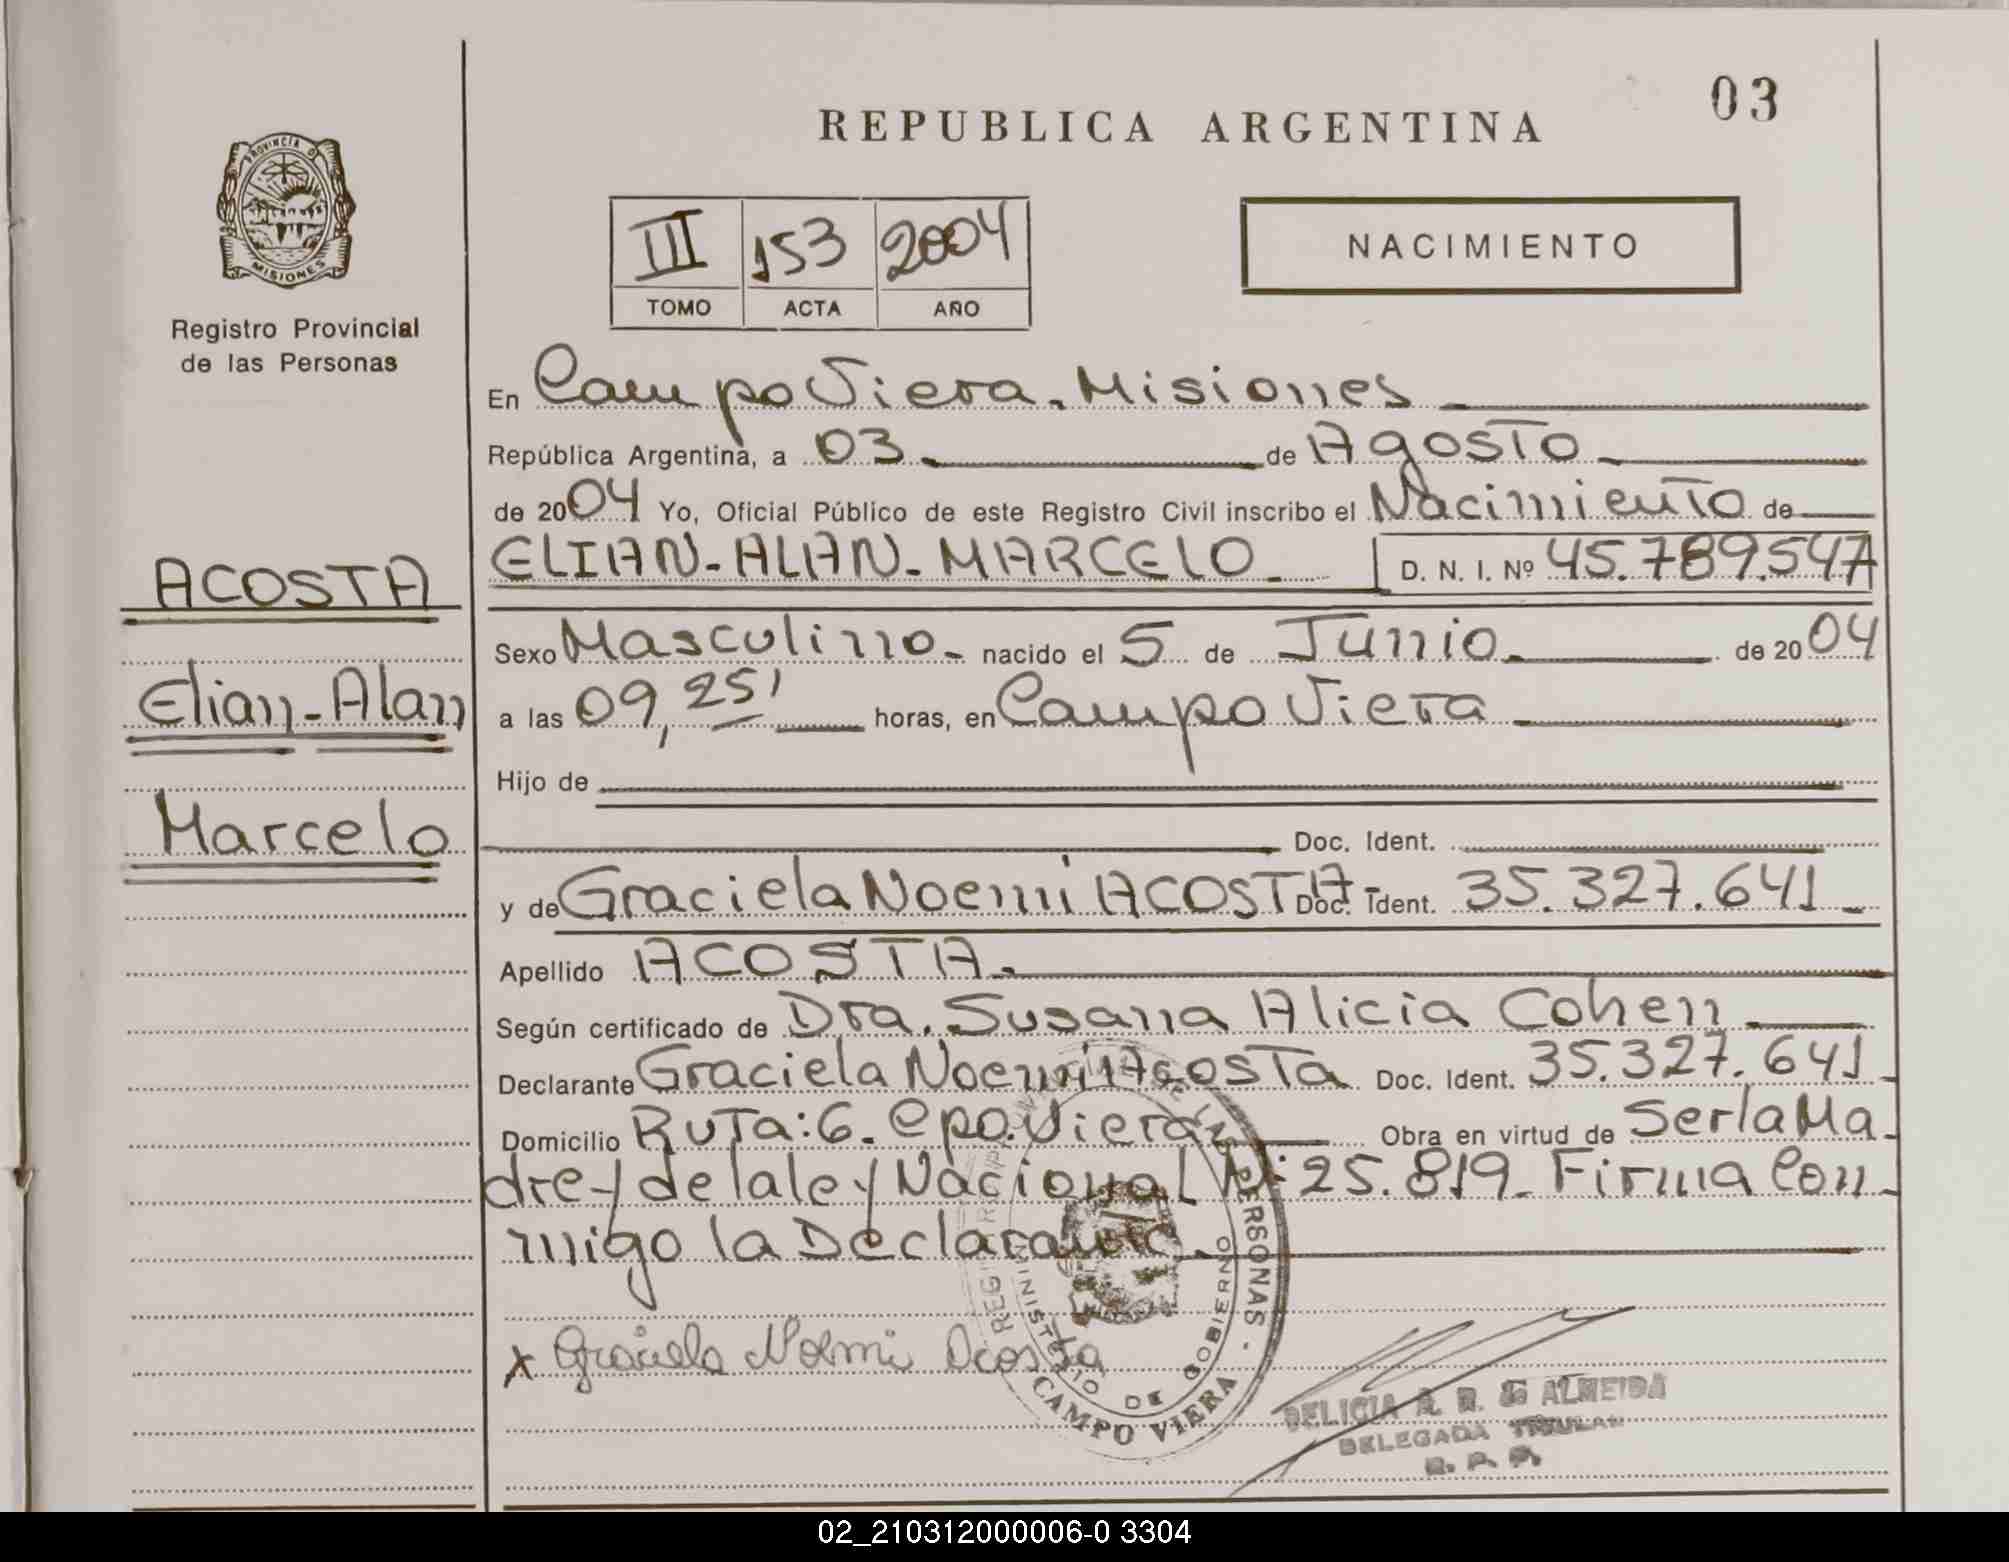 03
REPUBLICA ARGENTINA
PROVINCIA D
MISIONES
Registro Provincial
de las Personas
III 153 2004
TOMO ACTA AÑO
NACIMIENTO
En Campo Viera. Misiones
República Argentina, a 03 de Agosto
de 2004 Yo, Oficial Público de este Registro Civil inscribo el Nacimiento de
ACOSTA
ELIAN-ALAN-MARCELO D. N. I. Nº 45.789.547
Sexo Masculino nacido el 5 de Junio de 2004
Elian-Alan
a las 09,25' horas, en Campo Viera
Hijo de
Marcelo
Doc. Ident.
y de Graciela Noemi ACOSTA Doc. Ident. 35.327.641
Apellido ACOSTA
Según certificado de Dra. Susana Alicia Cohen
Declarante Graciela Noemi Acosta Doc. Ident. 35.327.641
Domicilio Ruta: 6. Cpo. Viera Obra en virtud de Ser la Ma
dre y de la ley Nacional Nº: 25.819. Firma Con
migo la Declarante
x Graciela Noemi Acosta
PERSONAS
MINISTERIO DE GOBIERNO
CAMPO VIERA
DELICIA R. R. de ALMEIDA
DELEGADA TITULAR
R. P. P.
02_210312000006-0 3304